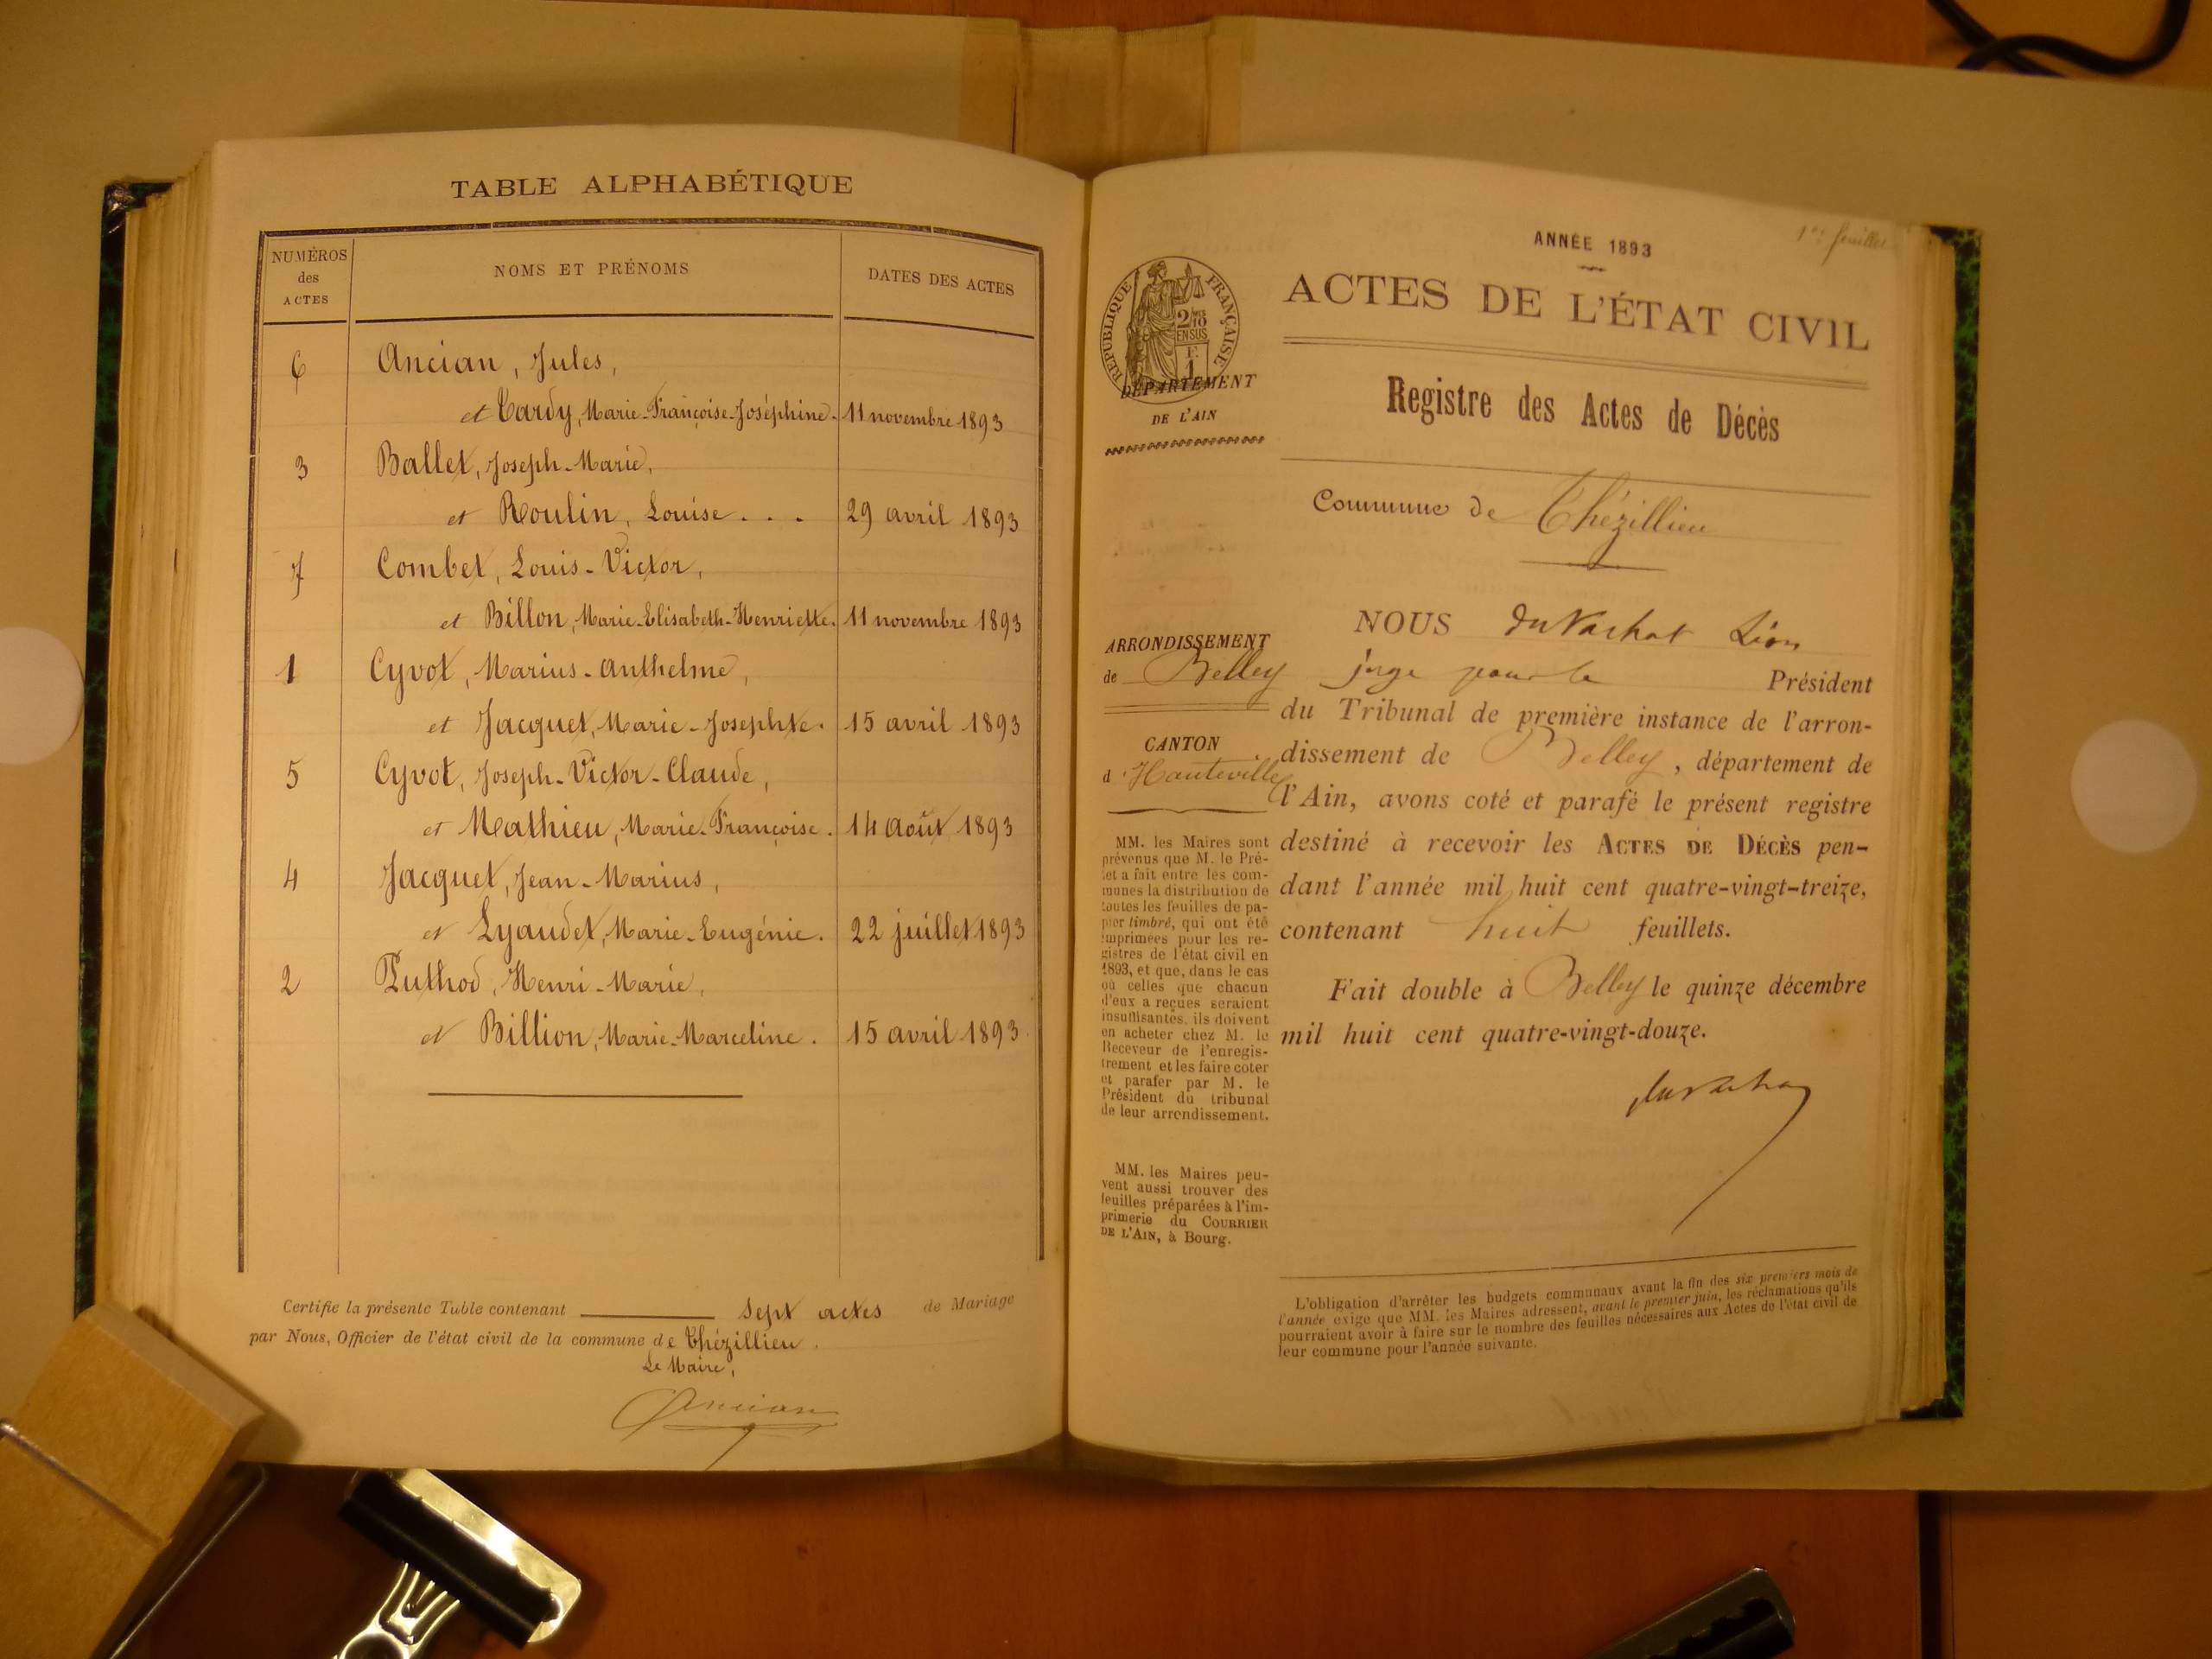 TABLE ALPHABÉTIQUE
NUMÉROS
des
ACTES
NOMS ET PRÉNOMS
DATES DES ACTES
6 Ancian, Jules,
et Tardy, Marie-Françoise-Joséphine. 11 novembre 1893
3 Ballet, Joseph-Marie,
et Roulin, Louise . . . 29 avril 1893
7 Combet, Louis-Victor,
et Billon, Marie-Elisabeth-Henriette. 11 novembre 1893
1 Cyvot, Marius-Anthelme,
et Jacquet, Marie-Josephte. 15 avril 1893
5 Cyvot, Joseph-Victor-Claude,
et Mathieu, Marie-Françoise. 14 août 1893
4 Jacquet, Jean-Marius,
et Lyaudet, Marie-Eugénie. 22 juillet 1893
2 Puthod, Henri-Marie,
et Billion, Marie-Marceline. 15 avril 1893
Certifie la présente Table contenant sept actes de Mariage
par Nous, Officier de l'état civil de la commune de Thézillieu.
Le Maire,
Ancian
1er feuillet
ANNÉE 1893
RÉPUBLIQUE FRANÇAISE
2/10
EN SUS
F.
1
ACTES DE L'ÉTAT CIVIL
DÉPARTEMENT
DE L'AIN
Registre des Actes de Décès
Commune de Thézillieu
ARRONDISSEMENT
de Belley
CANTON
d'Hauteville
MM. les Maires sont
prévenus que M. le Pré-
fet a fait entre les com-
munes la distribution de
toutes les feuilles de pa-
pier timbré, qui ont été
imprimées pour les re-
gistres de l'état civil en
1893, et que, dans le cas
où celles que chacun
d'eux a reçues seraient
insuffisantes, ils doivent
en acheter chez M. le
Receveur de l'enregis-
trement et les faire coter
et parafer par M. le
Président du tribunal
de leur arrondissement.
MM. les Maires peu-
vent aussi trouver des
feuilles préparées à l'im-
primerie du COURRIER
DE L'AIN, à Bourg.
NOUS du Vachat Léon
juge pour le Président
du Tribunal de première instance de l'arron-
dissement de Belley, département de
l'Ain, avons coté et parafé le présent registre
destiné à recevoir les ACTES DE DÉCÈS pen-
dant l'année mil huit cent quatre-vingt-treize,
contenant huit feuillets.
Fait double à Belley le quinze décembre
mil huit cent quatre-vingt-douze.
du Vachat
L'obligation d'arrêter les budgets communaux avant la fin des six premiers mois de
l'année exige que MM. les Maires adressent, avant le premier juin, les réclamations qu'ils
pourraient avoir à faire sur le nombre des feuilles nécessaires aux Actes de l'état civil de
leur commune pour l'année suivante.